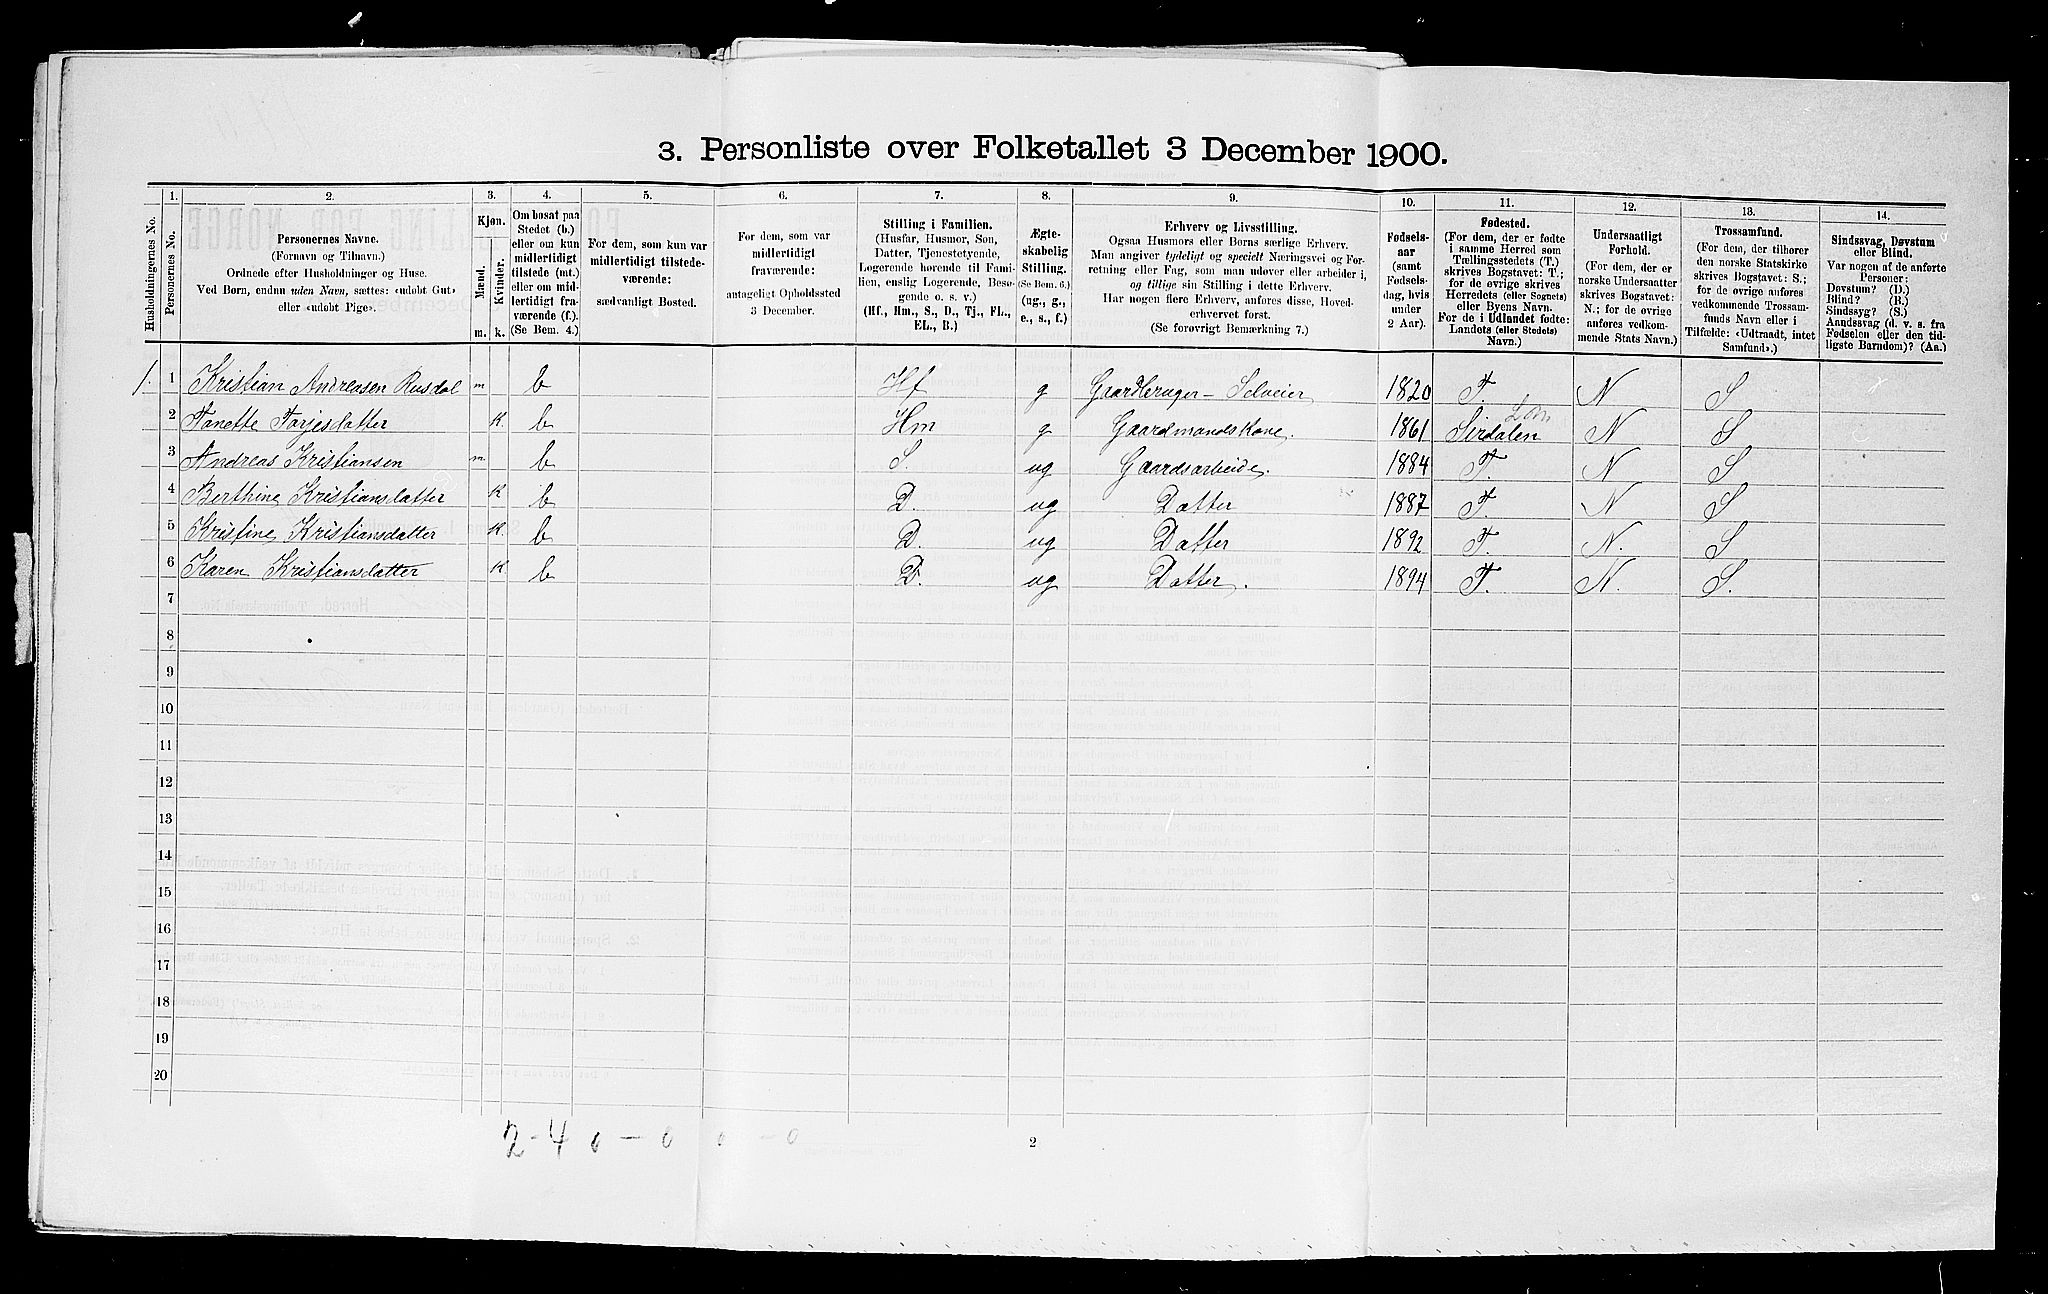 3. Personliste over Folketallet 3 December 1900.
Husholdningernes No.
1.
Personernes No.
2.
Personernes Navne.
(Fornavn og Tilnavn.)
Ordnede efter Husholdninger og Huse.
Ved Børn, endnu uden Navn, sættes: «udøbt Gut»
eller «udøbt Pige».
3.
Kjøn.
Mænd.
Kvinder.
m.
k.
4.
Om bosat paa
Stedet (b.)
eller om kun
midlertidigt
tilstede (mt.)
eller om mid-
lertidigt fra-
værende (f.).
(Se Bem. 4.)
5.
For dem, som kun var
midlertidigt tilstede-
værende:
sædvanligt Bosted.
6.
For dem, som var
midlertidigt
fraværende:
antageligt Opholdssted
3 December.
7.
Stilling i Familien.
(Husfar, Husmor, Søn,
Datter, Tjenestetyende,
Logerende hørende til Fami-
lien, enslig Logerende, Besø-
gende o. s. v.)
(Hf., Hm., S., D., Tj., FL.,
EL., B.)
8.
Ægte-
skabelig
Stilling.
(Se Bem. 6.)
(ug., g.,
e., s., f.)
9.
Erhverv og Livsstilling.
Ogsaa Husmors eller Børns særlige Erhverv.
Man angiver tydeligt og specielt Næringsvei og For-
retning eller Fag, som man udøver eller arbeider i,
og tillige sin Stilling i dette Erhverv.
Har nogen flere Erhverv, anføres disse, Hoved-
erhvervet først.
(Se forøvrigt Bemærkning 7.)
10.
Fødsels-
aar
(samt
Fødsels-
dag, hvis
under
2 Aar).
11.
Fødested.
(For dem, der er fødte
i samme Herred som
Tællingsstedets (T.)
skrives Bogstavet: T.;
for de øvrige skrives
Herredets (eller Sognets)
eller Byens Navn.
For de i Udlandet fødte:
Landets (eller Stedets)
Navn.)
12.
Undersaatligt
Forhold.
(For dem, der er
norske Undersaatter
skrives Bogstavet:
N.; for de øvrige
anføres vedkom-
mende Stats Navn.)
13.
Trossamfund.
(For dem, der tilhører
den norske Statskirke
skrives Bogstavet: S.;
for de øvrige anføres
vedkommende Trossam-
funds Navn eller i
Tilfælde: «Udtraadt, intet
Samfund».)
14.
Sindssvag, Døvstum
eller Blind.
Var nogen af de anførte
Personer:
Døvstum? (D.)
Blind? (B.)
Sindssyg? (S.)
Aandssvag (d. v. s. fra
Fødselen eller den tid-
ligste Barndom)? (Aa.)
1. 1 Kristian Andreasen Rusdal m b Hf g Gaardbruger - Selveier 1820 T. N S
2 Tanette Tarjesdatter K. b Hm g Gaardmandskone. 1861 Sirdalen N S
3 Andreas Kristiansen m b S. ug Gaardsarbeide. 1884 T. N S
4 Berthine Kristiansdatter K b D. ug Datter 1887 T. N S
5 Kristine Kristiansdatter K. b D. ug Datter 1892 T. N. S
6 Karen Kristiansdatter K b D. ug Datter. 1894 T. N. S.
7
8
9
10
11
12
13
14
15
16
17
18
19
20
2-4 0 - 0 0 - 0
2